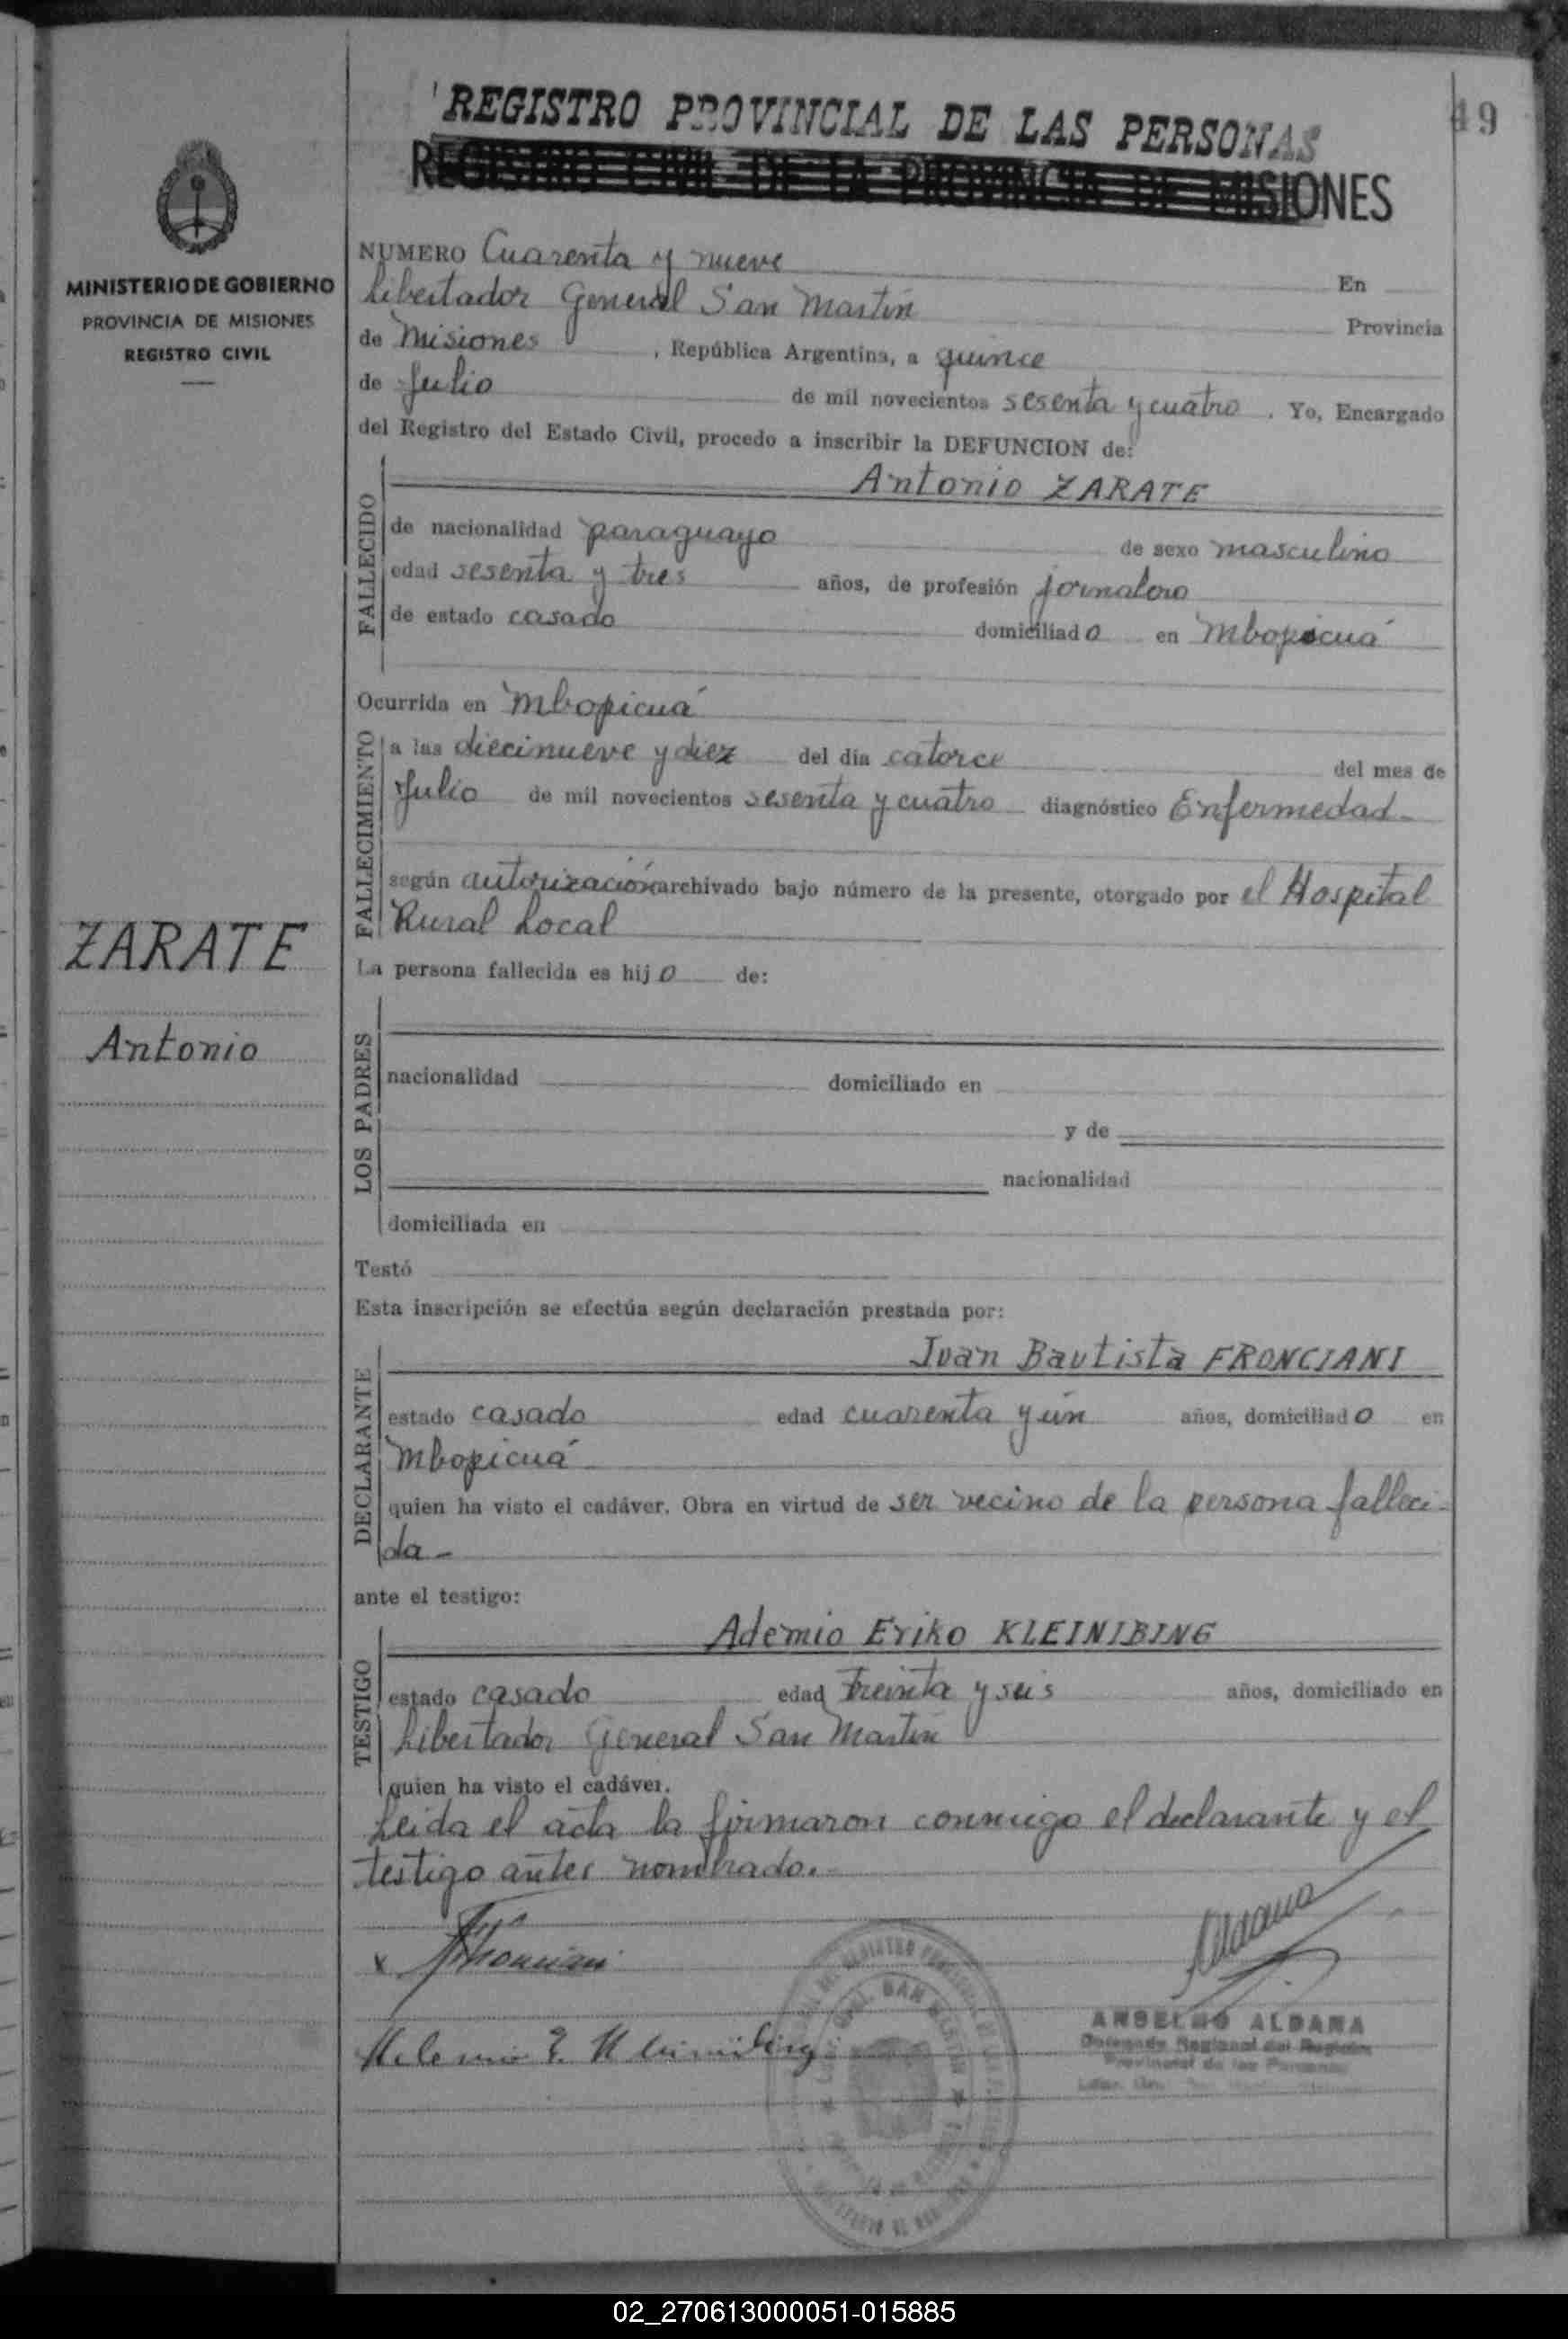 49
REGISTRO PROVINCIAL DE LAS PERSONAS
REGISTRO CIVIL DE LA PROVINCIA DE MISIONES
MINISTERIO DE GOBIERNO
PROVINCIA DE MISIONES
REGISTRO CIVIL
ZARATE
Antonio
NUMERO Cuarenta y nueve En
Libertador General San Martín Provincia
de Misiones, República Argentina, a quince
de Julio de mil novecientos sesenta y cuatro. Yo, Encargado
del Registro del Estado Civil, procedo a inscribir la DEFUNCION de:
FALLECIDO
Antonio ZARATE
de nacionalidad paraguayo de sexo masculino
edad sesenta y tres años, de profesión jornalero
de estado casado domiciliado en Mbopicuá
Ocurrida en Mbopicuá
FALLECIMIENTO
a las diecinueve y diez del día catorce del mes de
Julio de mil novecientos sesenta y cuatro diagnóstico Enfermedad-
según autorización archivado bajo número de la presente, otorgado por el Hospital
Rural Local
La persona fallecida es hijo de:
LOS PADRES
nacionalidad domiciliado en
y de
nacionalidad
domiciliada en
Testó
Esta inscripción se efectúa según declaración prestada por:
DECLARANTE
Juan Bautista FRONCIANI
estado casado edad cuarenta y ún años, domiciliado en
Mbopicuá
quien ha visto el cadáver. Obra en virtud de ser vecino de la persona falleci-
da-
ante el testigo:
TESTIGO
Ademio Eriko KLEINIBING
estado casado edad treinta y seis años, domiciliado en
Libertador General San Martín
quien ha visto el cadáver.
Leida el acta la firmaron conmigo el declarante y el
testigo antes nombrado.-
Aldana
x Fronciani
ANSELMO ALDANA
Delegado Regional del Registro
Provincial de las Personas
GRAL. SAN MARTIN
02_270613000051-015885